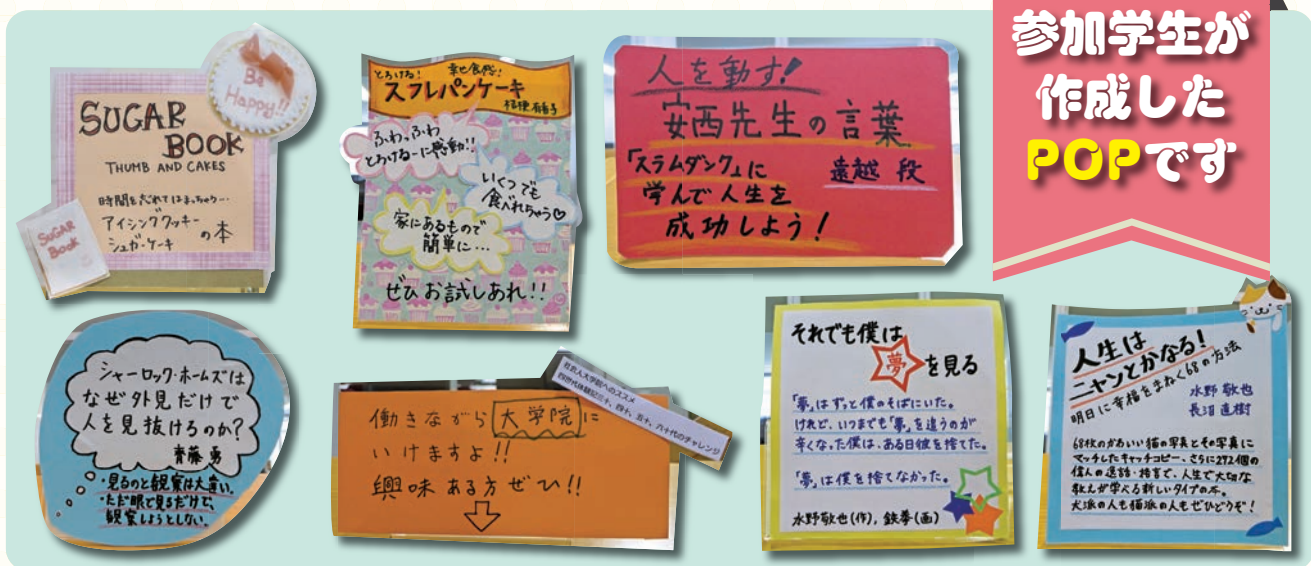 参加学生が
作成した
POPです
Be
Happy!!
SUGAR
BOOK
THUMB AND CAKES
時間を忘れてはまっちゃう…
アイシングクッキー
シュガーケーキ
の本
SUGAR
BOOK
とろける! 幸せ食感!
スフレパンケーキ
桔梗 有香子
ふわっふわ
とろけるーに感動!!
いくつでも
食べれちゃう♡
家にあるもので
簡単に…
ぜひお試しあれ!!
人を動す!
安西先生の言葉
遠越 段
「スラムダンク」に
学んで人生を
成功しよう!
シャーロック・ホームズは
なぜ外見だけで
人を見抜けるのか?
齊藤 勇
・見るのと観察は大違い。
・ただ眼で見るだけで、
観察しようとしない。
社会人大学院へのススメ
四世代体験記三十、四十、五十、六十代のチャレンジ
働きながら大学院に
いけますよ!!
興味ある方ぜひ!!
それでも僕は
夢を見る
「夢」はずっと僕のそばにいた。
けれど、いつまでも「夢」を追うのが
辛くなった僕は、ある日彼を捨てた。
「夢」は僕を捨てなかった。
水野敬也(作), 鉄拳(画)
人生は
ニャンとかなる!
明日に幸福をまねく68の方法
水野 敬也
長沼 直樹
68枚のかわいい猫の写真とその写真に
マッチしたキャッチコピー、さらに272個の
偉人の逸話・格言で、人生で大切な
教えが学べる新しいタイプの本。
犬派の人も猫派の人もぜひどうぞ!